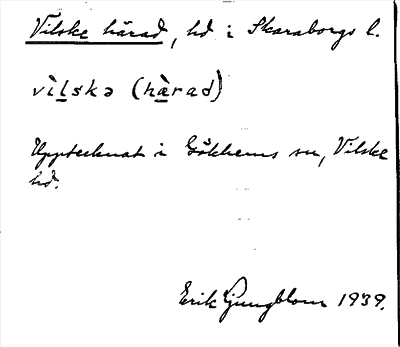 Vilske härad, hd i Skaraborgs l.
vìlskə (hàrad)
Upptecknat i Gökhems sn, Vilske
hd.
Erik Ljungblom 1939.